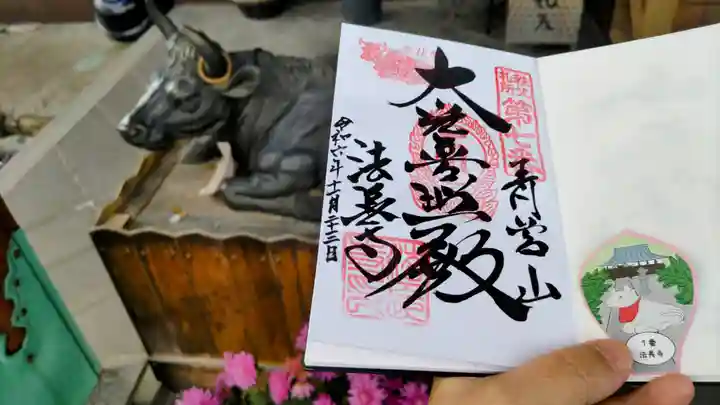 第七番
青苔山
大光普照殿
法長寺
令和六年十一月二十三日
7番
法長寺